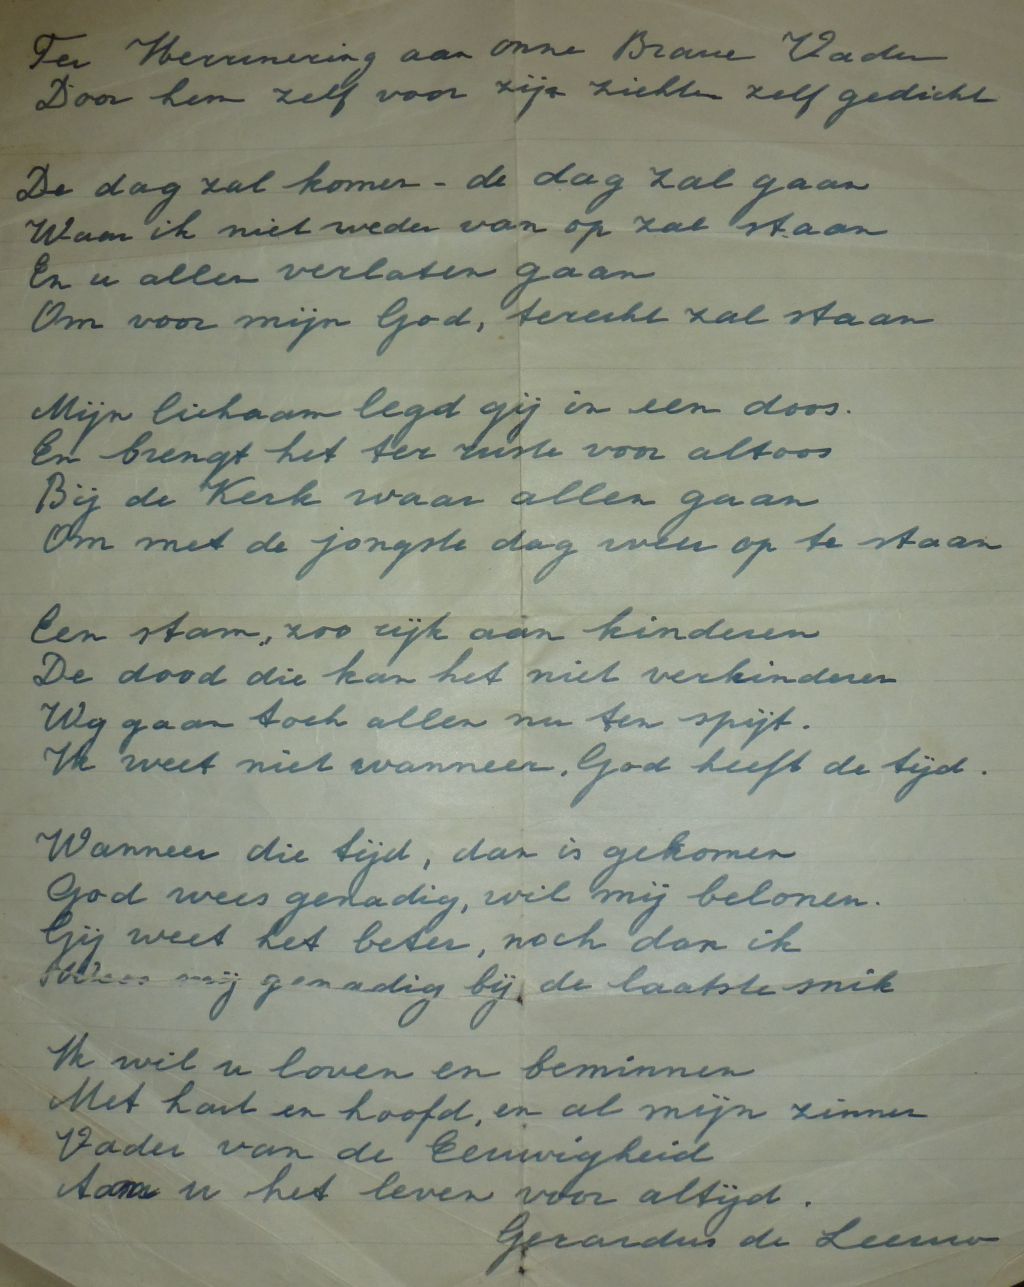 Ter Herrinering aan onne Brave Vader
Door hem zelf voor zijn ziekten zelf gedicht
De dag zal komen - de dag zal gaan
Waar ik niet weder van op zal staan
En u allen verlaten gaan
Om voor mijn God, terecht zal staan
Mijn lichaam legd gij in een doos.
En brengt het ter ruste voor altoos
Bij de Kerk waar allen gaan
Om met de jongste dag weer op te staan
Een stam, zoo rijk aan kinderen
De dood die kan het niet verhinderen
Wy gaan toch allen nu ten spijt.
Ik weet niet wanneer, God heeft de tijd.
Wanneer die tijd, dan is gekomen
God wees genadig, wil mij belonen.
Gij weet het beter, noch dan ik
Wees mij genadig bij de laatste snik
Ik wil u loven en beminnen
Met hart en hoofd, en al mijn zinnen
Vader van de Eeuwigheid
Aan u het leven voor altijd.
Gerardus de Leeuw